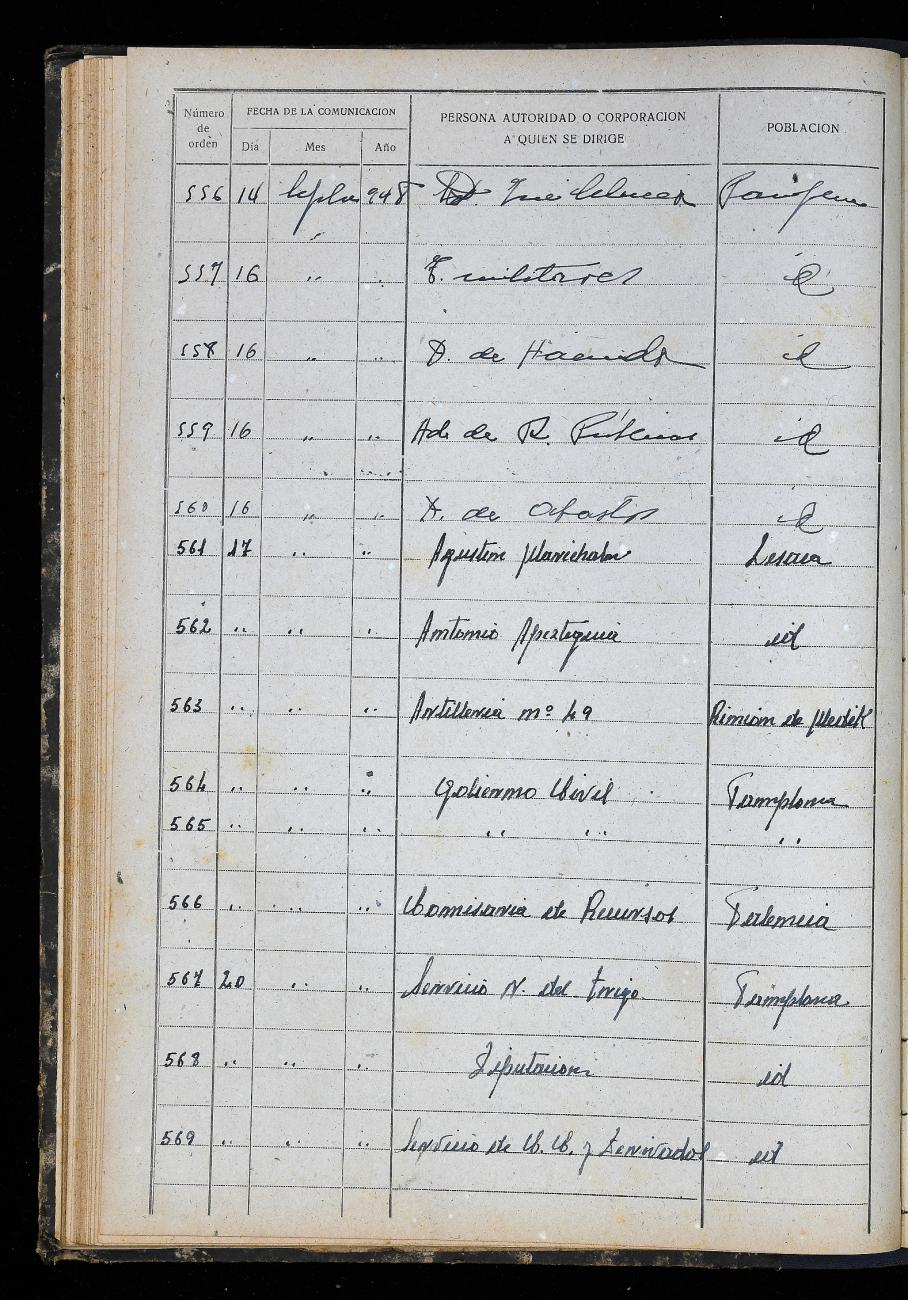 Número de orden FECHA DE LA COMUNICACION PERSONA AUTORIDAD O CORPORACION A QUIEN SE DIRIGE POBLACION
Día Mes Año
556 14 948 D.
557 16 " " militares id
558 16 " " D. de Hacienda id
559 16 " " Ad. de id
560 16 " " D. de Abastos id
561 17 " " Agustin Marichalar Lesaca
562 " " " Antonio Apezteguia id
563 " " " Artilleria nº 49
564 " " " Gobierno Civil Pamplona
565 " " " " " "
566 " " " Comisaria de Recursos Palencia
567 20 " " Servicio N. del trigo Pamplona
568 " " " Diputacion id
569 " " " Servicio de C. C. y Derivados id